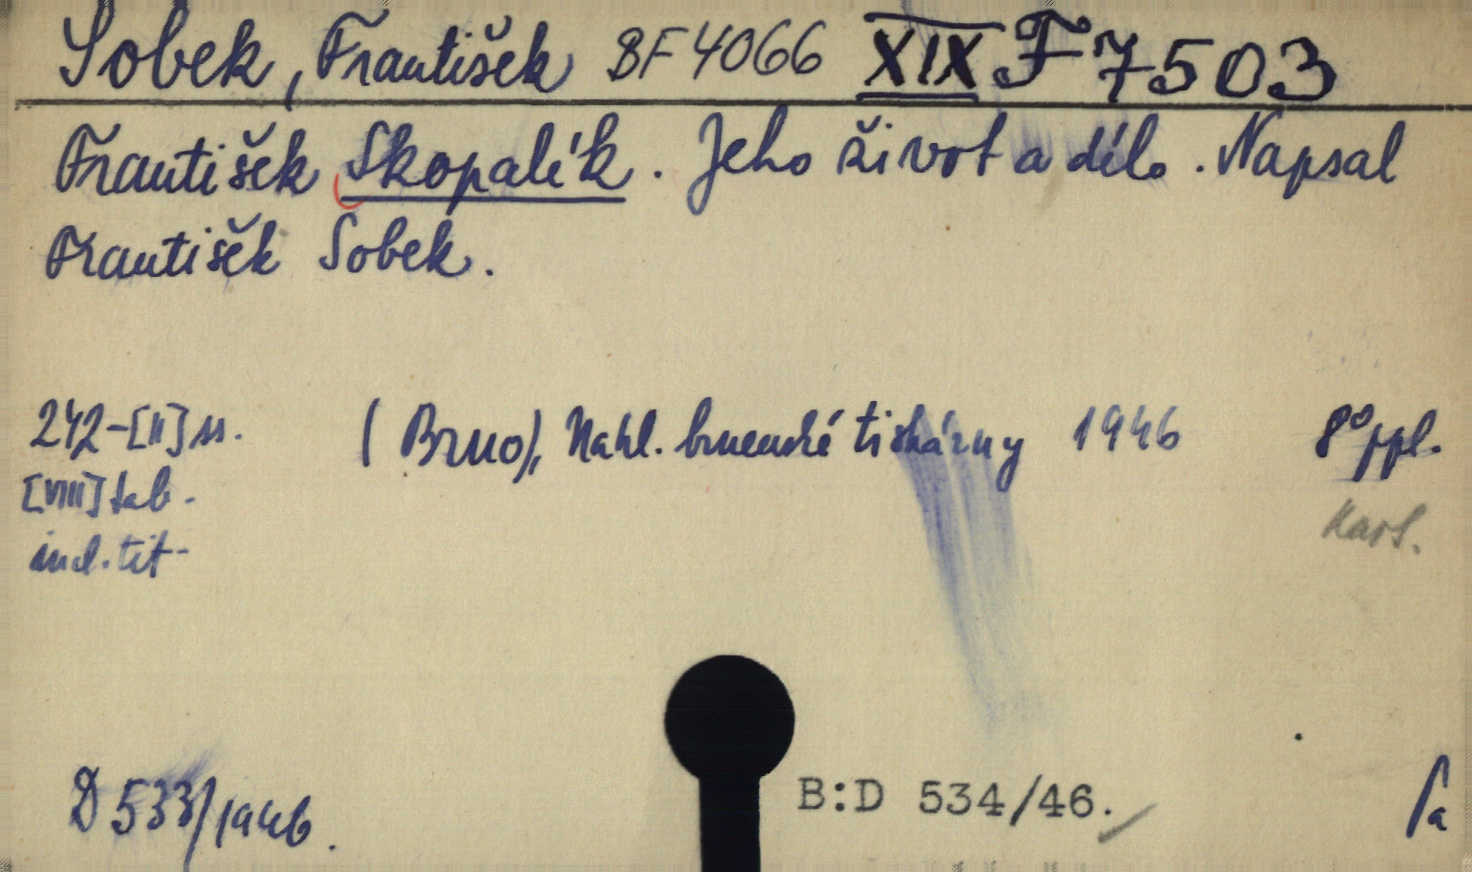 Sobek, František BF 4066 XIX F 7503
František Skopalík. Jeho život a dílo. Napsal
František Sobek.
242-[II] ss. (Brno), Nákl. brněnské tiskárny 1946 8° ppl.
[VIII] tab.
incl. tit.
D 533/1946. B:D 534/46.